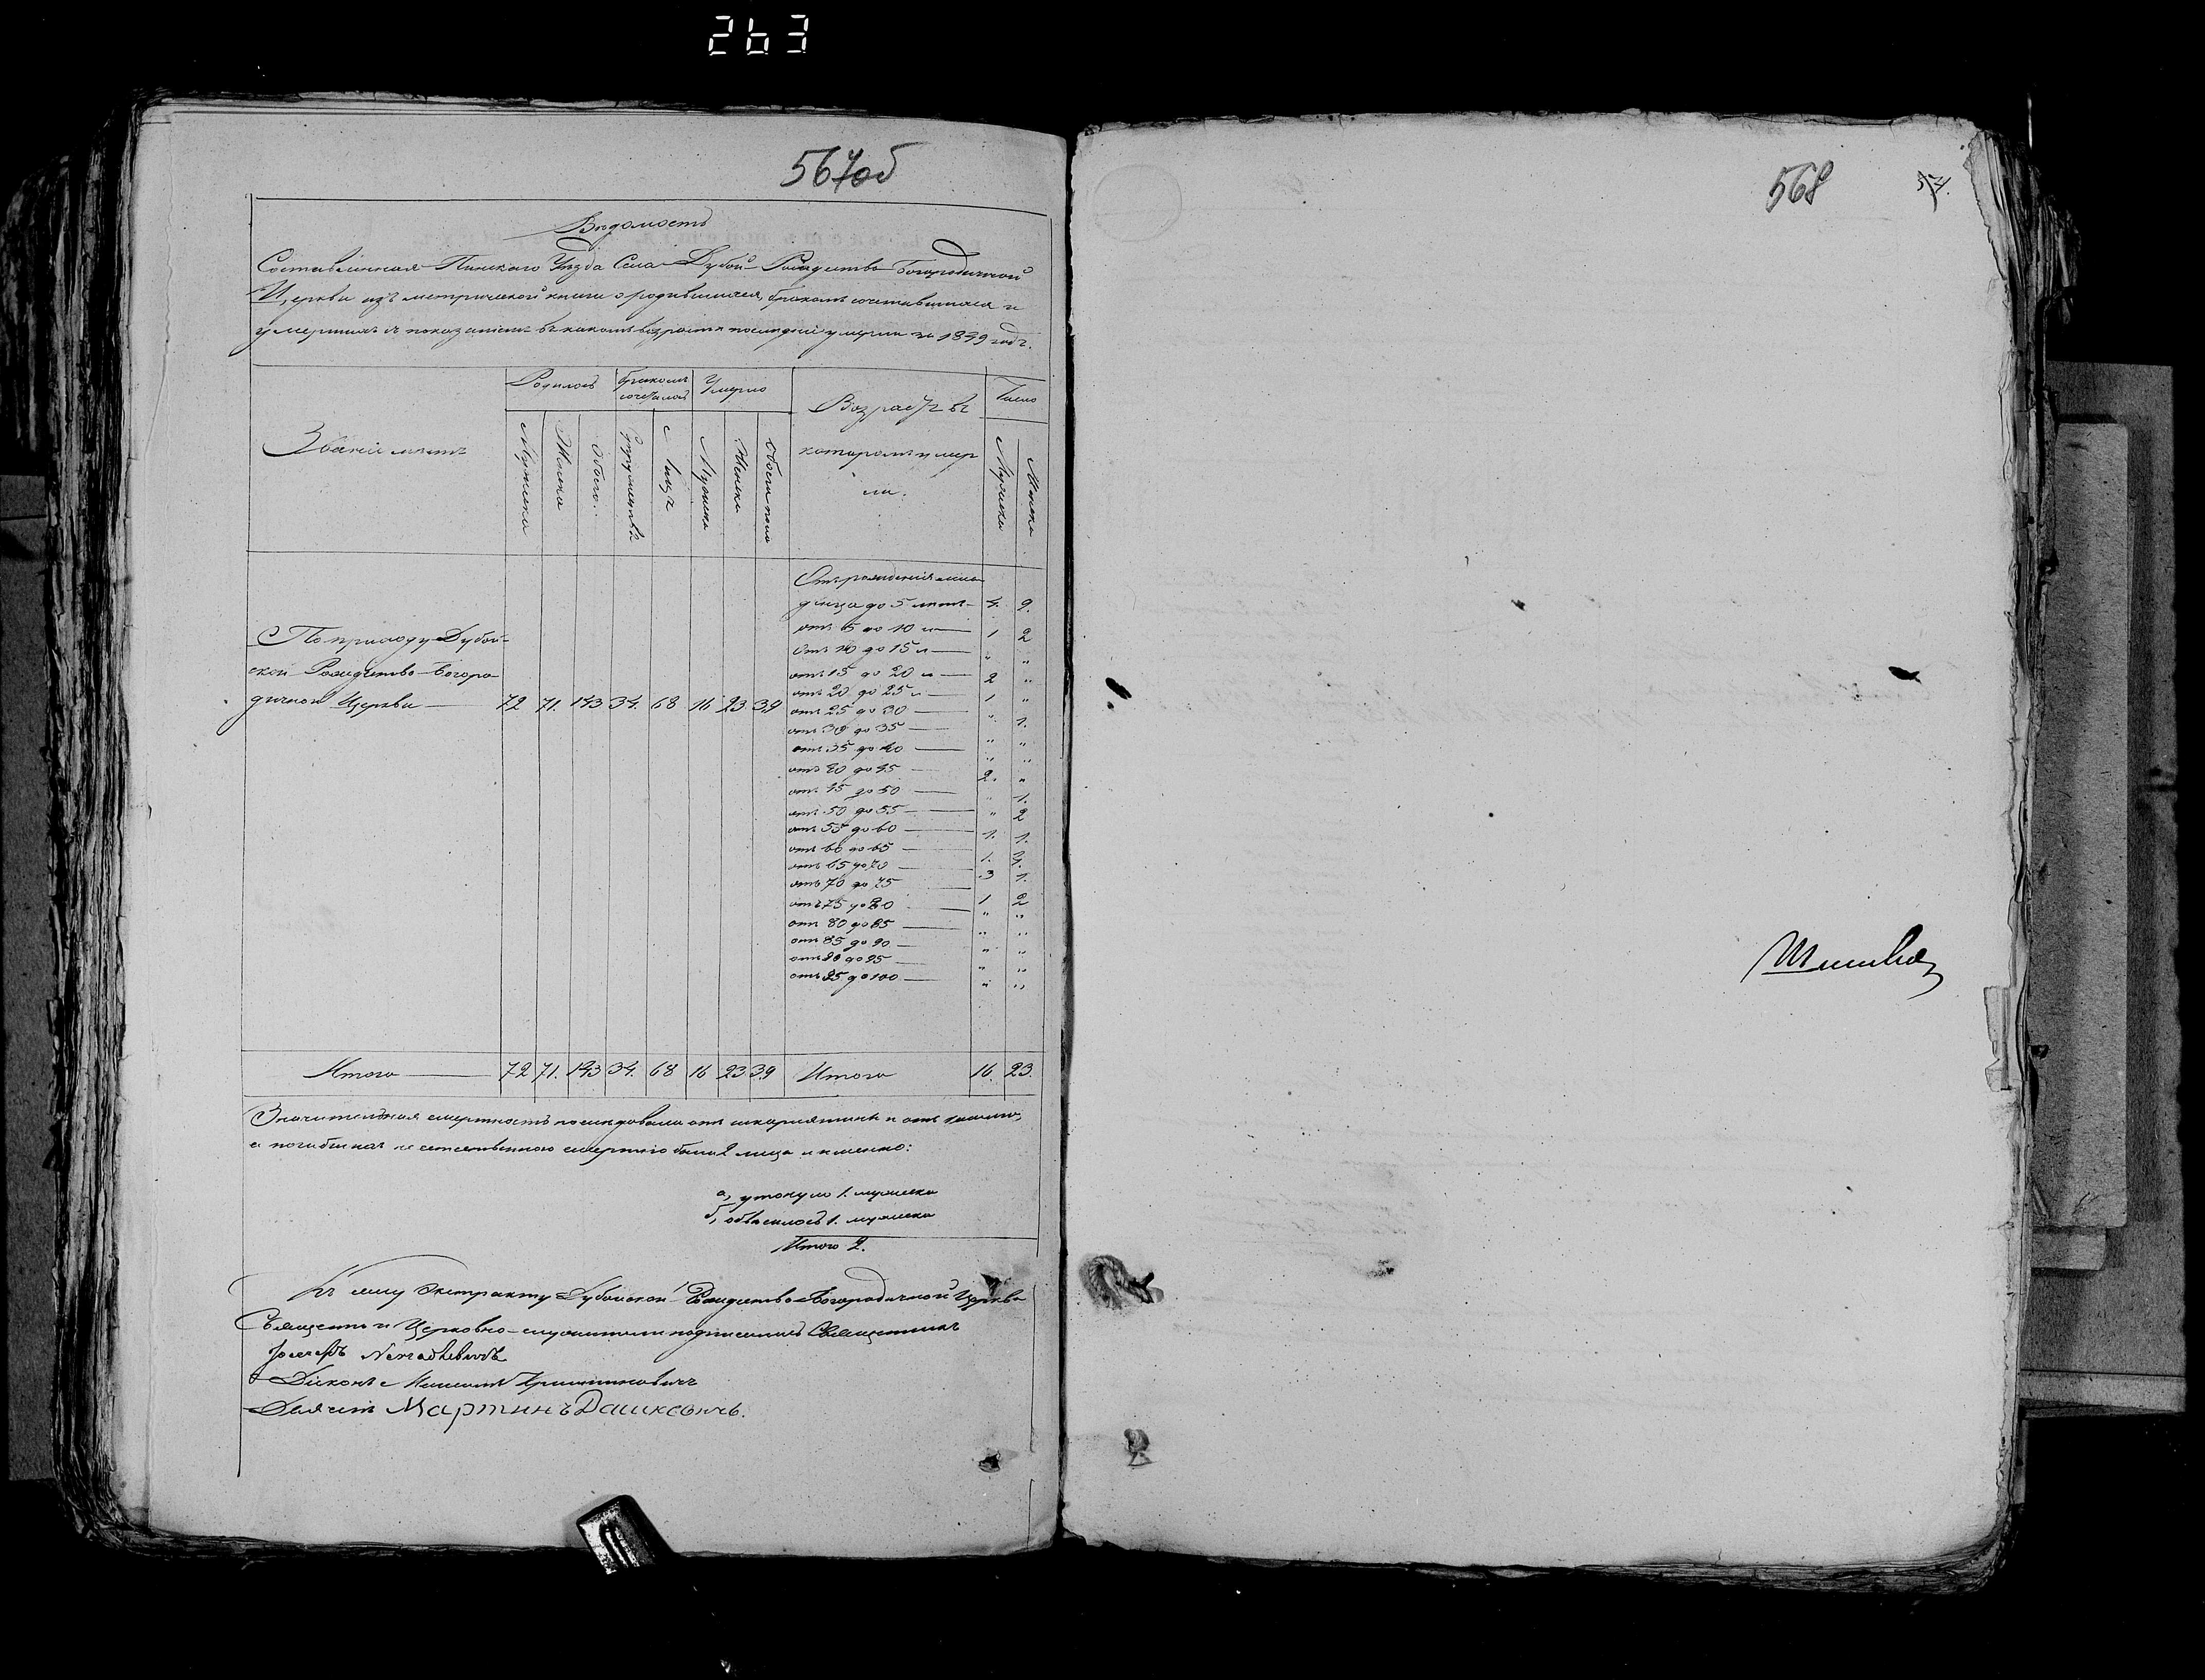 263
567об
Ведомость
Составленная Пинскаго Уѣзда Села Дубой Рождество Богородичной
Церкви изъ метрической книги о родившихся, бракомъ сочетавшихся и
умершихъ съ показаніемъ въ какомъ возрастѣ последніе умерли за 1849 годъ.
Званіе мѣстъ
Родилось
бракомъ сочеталось
Умерло
Возрастъ въ
которомъ умер
ли.
Число
Мужеска
Женска
Обоего
Супружествъ
Лицъ
Мужеска
Женска
Обоего пола
Мужеска
Женска
По приходу Дубой-
ской Рождество-Богоро
дичной Церкви 72 71. 143 34. 68 16 23 39
Отъ рожденія мла
денца до 5 лѣтъ 4. 9.
отъ 5 до 10 л 1 2
отъ 10 до 15 л " "
отъ 15 до 20 л 2 "
отъ 20 до 25 л 1 "
отъ 25 до 30 " 1.
отъ 30 до 35 " "
отъ 35 до 40 " "
отъ 40 до 45 2. "
отъ 45 до 50 " 1.
отъ 50 до 55 " 2
отъ 55 до 60 1. 1.
отъ 60 до 65 1.
отъ 65 до 70 3 1.
отъ 70 до 75 1 2
отъ 75 до 80 " "
отъ 80 до 85 " "
отъ 85 до 90 " "
отъ 90 до 95 " "
отъ 95 до 100 " "
Итого 72 71. 143 34. 68 16 23 39 Итого 16. 23.
Значительная смертность последовала отъ шкарлятины и отъ
а погибшихъ не естественною смертію было 2 лица именно:
а, утонуло 1. мужеска
б, обвѣсилось 1. мужеска
Итого 2.
Къ сему Экстракту Дубойской Рождество-Богородичной Церкви
Священно и Церковно-служители подписались Священникъ
Іосифъ
Діаконъ
Дьячекъ Мартинъ Дашкевичъ.
568